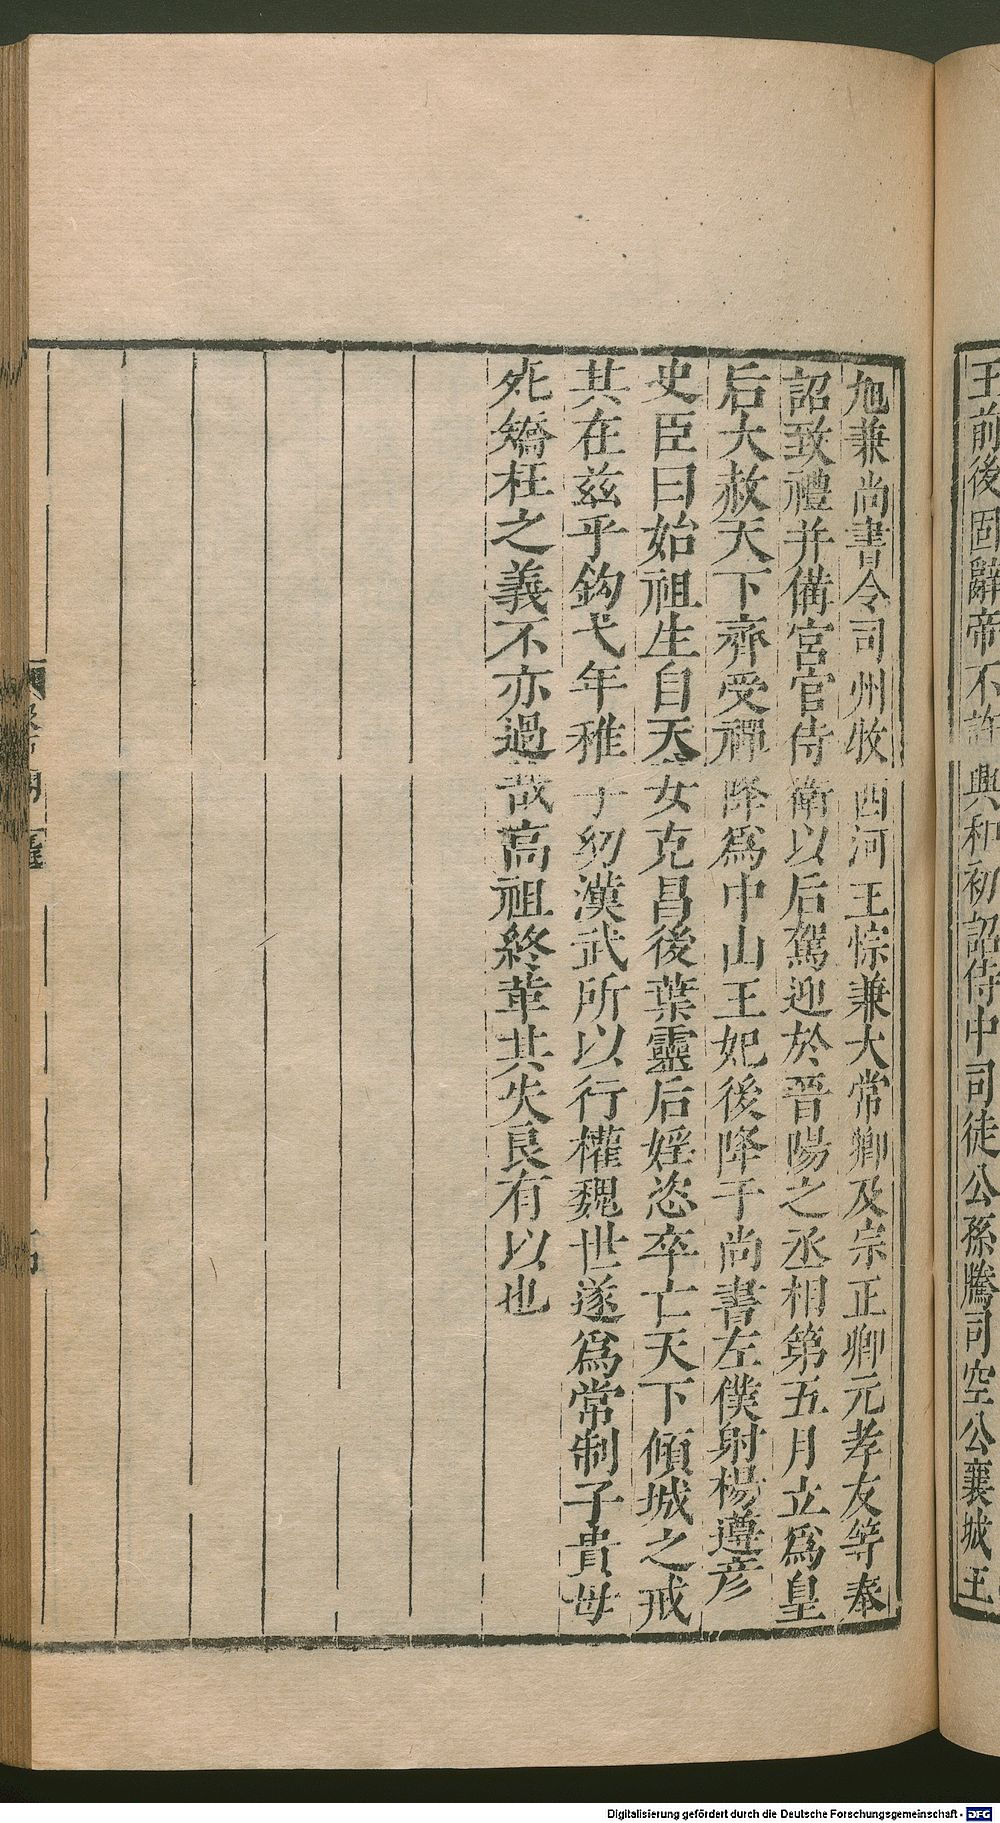 王前後固辭帝不許興和初詔侍中司徒公孫騰司空公襄城王
旭兼尚書令司州牧西河王悰兼大常卿及宗正卿元孝友等奉
詔致禮并備宮官侍衛以后駕迎於晉陽之丞相第五月立爲皇
后大赦天下齊受禪降爲中山王妃後降于尚書左僕射楊遵彦
史臣曰始祖生自天女克昌後葉靈后婬恣卒亡天下傾城之戒
其在兹乎鈎弋年稚子幼漢武所以行權魏世遂爲常制子貴母
死矯枉之義不亦過哉高祖終革其失良有以也
Digitalisierung gefördert durch die Deutsche Forschungsgemeinschaft - DFG